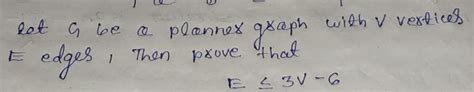 let G be a planner graph with V vertices
E edges, Then prove that
E ≤ 3V-6